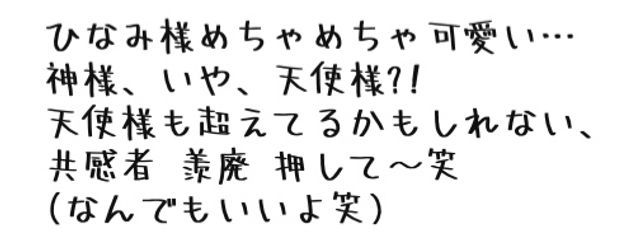 ひなみ様めちゃめちゃ可愛い…
神様、いや、天使様?!
天使様も超えてるかもしれない、
共感者 羨廃 押して〜笑
(なんでもいいよ笑)